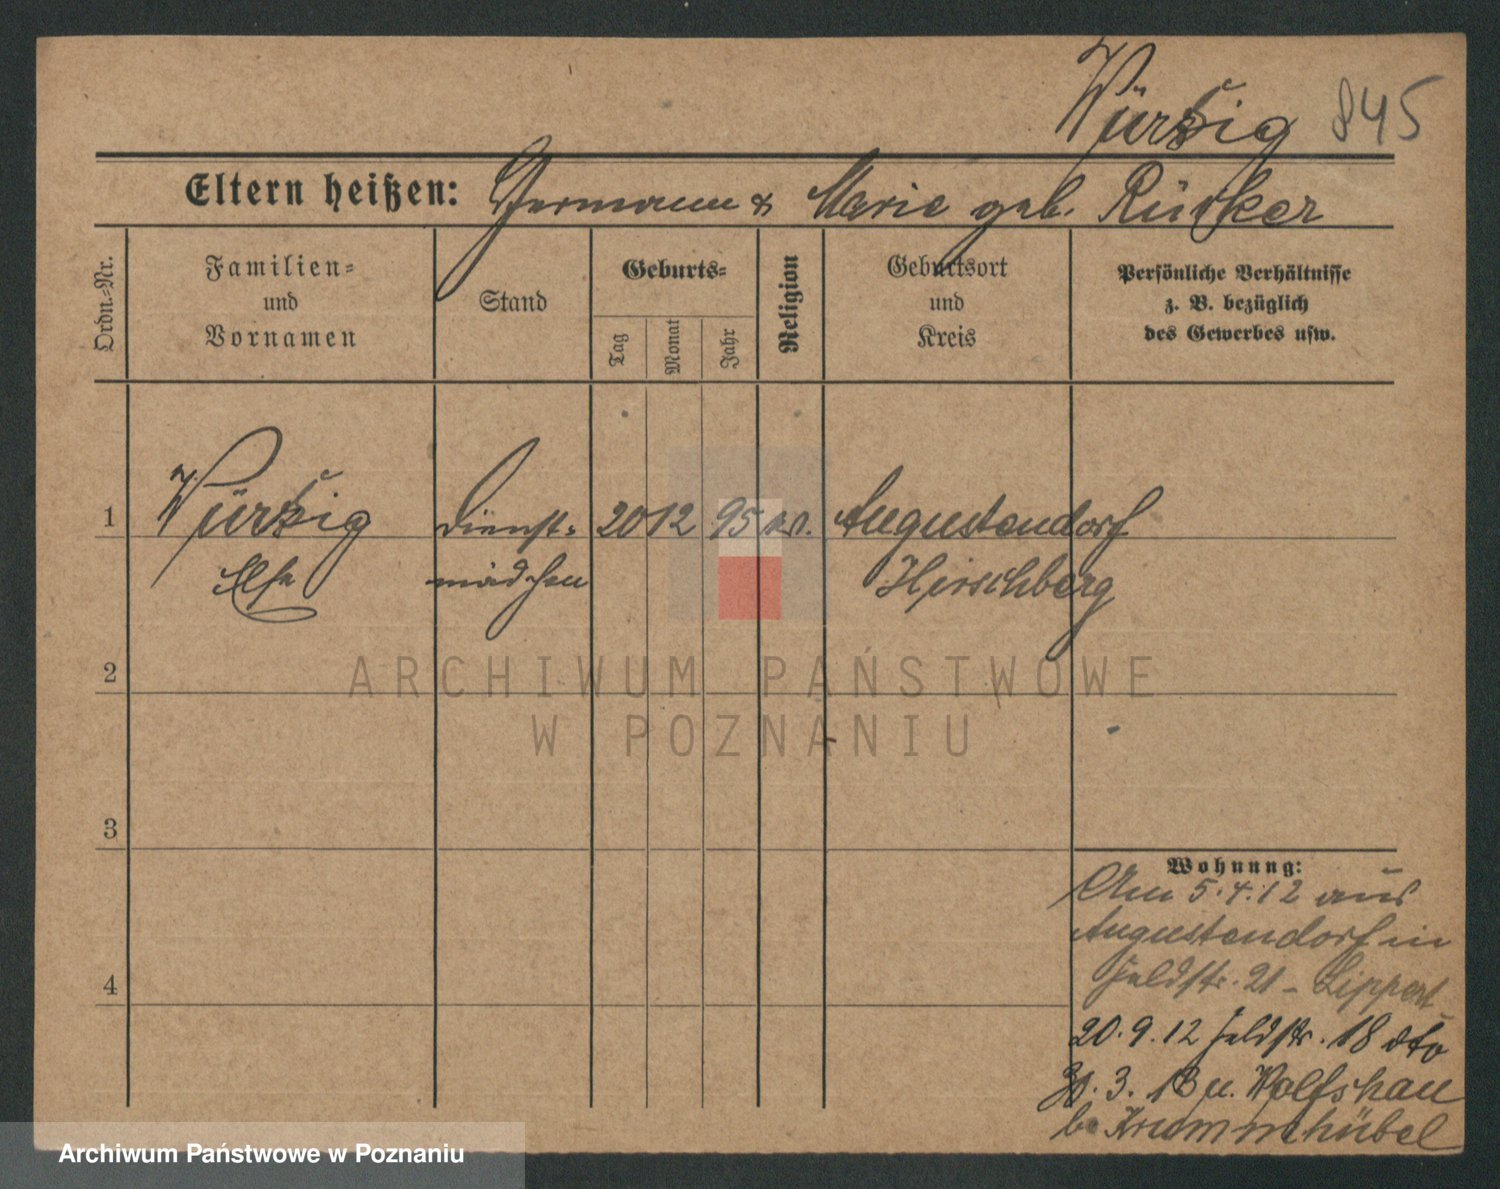 Würßig 845
Eltern heißen: Hermann & Marie geb. Rücker
Ordn.-Nr.
Familien-
und
Vornamen
Stand
Geburts-
Tag
Monat
Jahr
Religion
Geburtsort
und
Kreis
Persönliche Verhältnisse
z. B. bezüglich
des Gewerbes usw.
1 Würßig Dienst- 20 12 95 ev. Augustendorf
Else mädchen Hirschberg
2
3
4
Wohnung:
Am 5.4.12 aus
Augustendorf in
Feldstr. 21 - Lippert
20.9.12 Feldstr. 18 dto
3. 13 n. Wolfshau
b Krummhübel
ARCHIWUM PAŃSTWOWE
W POZNANIU
Archiwum Państwowe w Poznaniu